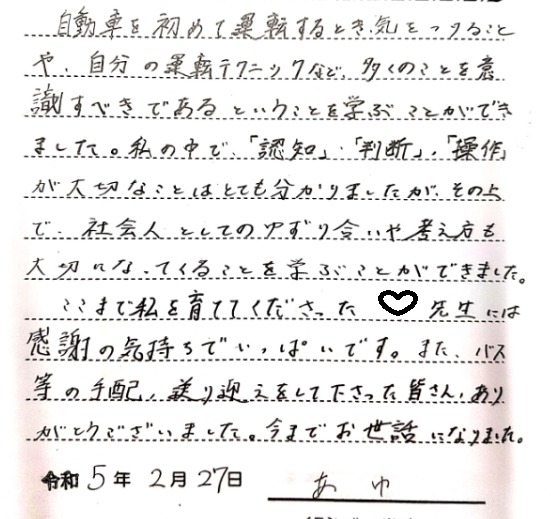 自動車を初めて運転するとき気をつけること
や、自分の運転テクニックなど、多くのことを意
識すべきであるということを学ぶことができ
ました。私の中で、「認知」・「判断」・「操作」
が大切なことはとても分かりましたが、その上
で、社会人としてのゆずり合いや考え方も
大切になってくることを学ぶことができました。
ここまで私を育ててくださった 先生には
感謝の気持ちでいっぱいです。また、バス
等の手配、送り迎えをして下さった皆さん、あり
がとうございました。今までお世話になりました。
令和5年 2月27日 あゆ